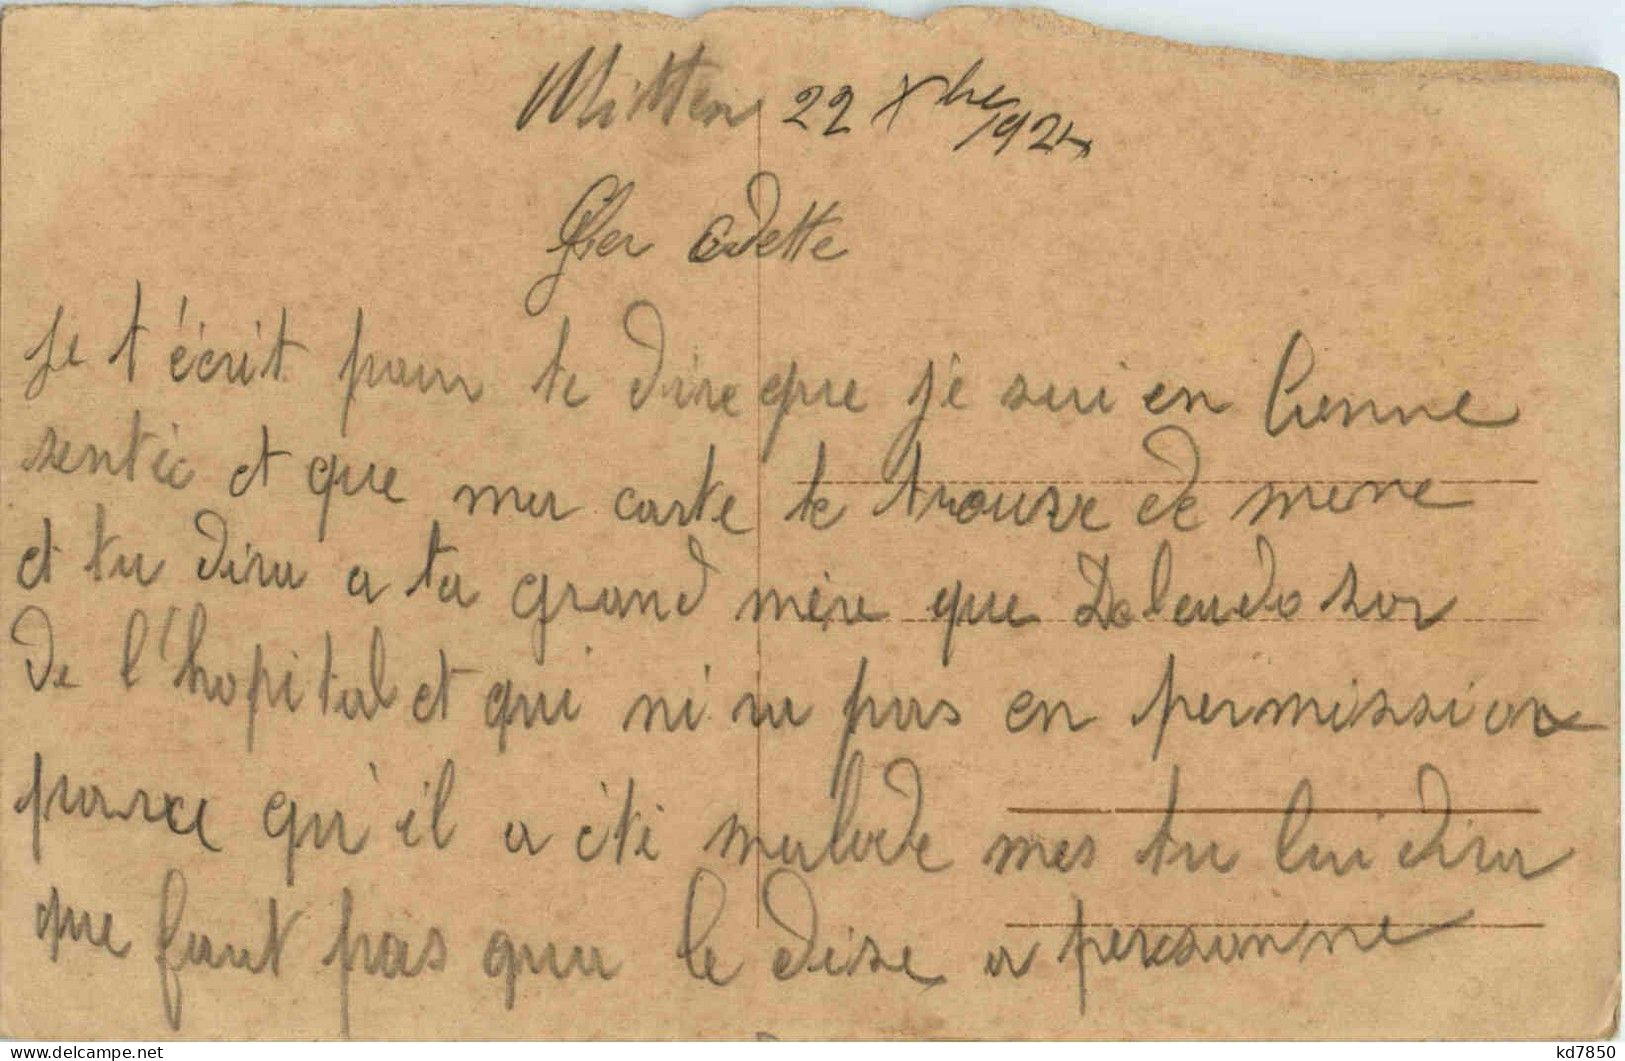 Witten 22 Xbre 1924
Cher Odette
je t'écrit pour te dire que je sui en bonne
sentée et que ma carte te trouve de meme
et tu dira a ta grand mère que sor
de l'hopital et qui ni va pas en permission
parce qu'il a été malade mes tu lui dira
que faut pas qua le dise a personne
kd7850